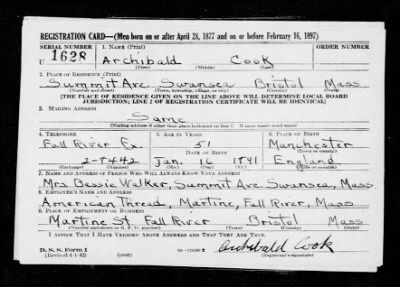 REGISTRATION CARD—(Men born on or after April 28, 1877 and on or before February 16, 1897)
SERIAL NUMBER 1. NAME (Print) ORDER NUMBER
U 1628 Archibald Cook
(First) (Middle) (Last)
2. PLACE OF RESIDENCE (Print)
Summit Ave. Swansea Bristol Mass
(Number and street) (Town, township, village, or city) (County) (State)
[THE PLACE OF RESIDENCE GIVEN ON THE LINE ABOVE WILL DETERMINE LOCAL BOARD
JURISDICTION; LINE 2 OF REGISTRATION CERTIFICATE WILL BE IDENTICAL]
3. MAILING ADDRESS
Same
[Mailing address if other than place indicated on line 2. If same insert word same]
4. TELEPHONE 5. AGE IN YEARS 6. PLACE OF BIRTH
Fall River Ex. 51 Manchester
DATE OF BIRTH (Town or county)
2-7442 Jan. 16 England
(Exchange) (Number) (Mo.) (Day) (Yr.) (State or country)
7. NAME AND ADDRESS OF PERSON WHO WILL ALWAYS KNOW YOUR ADDRESS
Mrs. Bessie Walker, Summit Ave. Swansea, Mass
8. EMPLOYER'S NAME AND ADDRESS
American Thread, Martine, Fall River, Mass
9. PLACE OF EMPLOYMENT OR BUSINESS
Martine St. Fall River Bristol Mass
(Number and street or R. F. D. number) (Town) (County) (State)
I AFFIRM THAT I HAVE VERIFIED ABOVE ANSWERS AND THAT THEY ARE TRUE.
D. S. S. Form 1 Archibald Cook
(Revised 4-1-42) (over) (Registrant's signature)